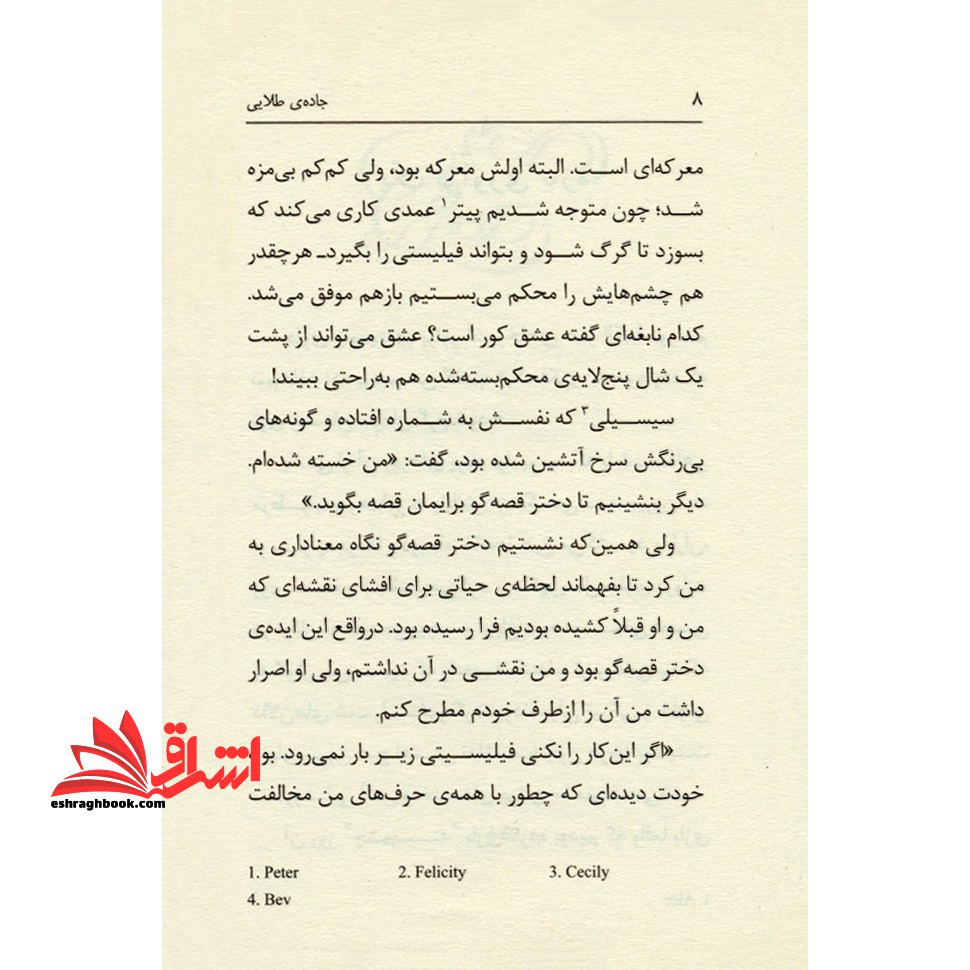 ۸
جاده‌ی طلایی
معرکه‌ای است. البته اولش معرکه بود، ولی کم‌کم بی‌مزه
شد؛ چون متوجه شدیم پیتر۱ عمدی کاری می‌کند که
بسوزد تا گرگ شود و بتواند فیلیستی را بگیرد ـ هرچقدر
هم چشم‌هایش را محکم می‌بستیم بازهم موفق می‌شد.
کدام نابغه‌ای گفته عشق کور است؟ عشق می‌تواند از پشت
یک شال پنج‌لایه‌ی محکم‌بسته‌شده هم به‌راحتی ببیند!
سیسیلی۳ که نفسش به شماره افتاده و گونه‌های
بی‌رنگش سرخ آتشین شده بود، گفت: «من خسته شده‌ام.
دیگر بنشینیم تا دختر قصه‌گو برایمان قصه بگوید.»
ولی همین‌که نشستیم دختر قصه‌گو نگاه معناداری به
من کرد تا بفهماند لحظه‌ی حیاتی برای افشای نقشه‌ای که
من و او قبلاً کشیده بودیم فرا رسیده بود. درواقع این ایده‌ی
دختر قصه‌گو بود و من نقشی در آن نداشتم، ولی او اصرار
داشت من آن را ازطرف خودم مطرح کنم.
«اگر این‌کار را نکنی فیلیسیتی زیر بار نمی‌رود.
خودت دیده‌ای که چطور با همه‌ی حرف‌های من مخالفت
1. Peter 2. Felicity 3. Cecily
4. Bev
اشراق
eshraghbook.com